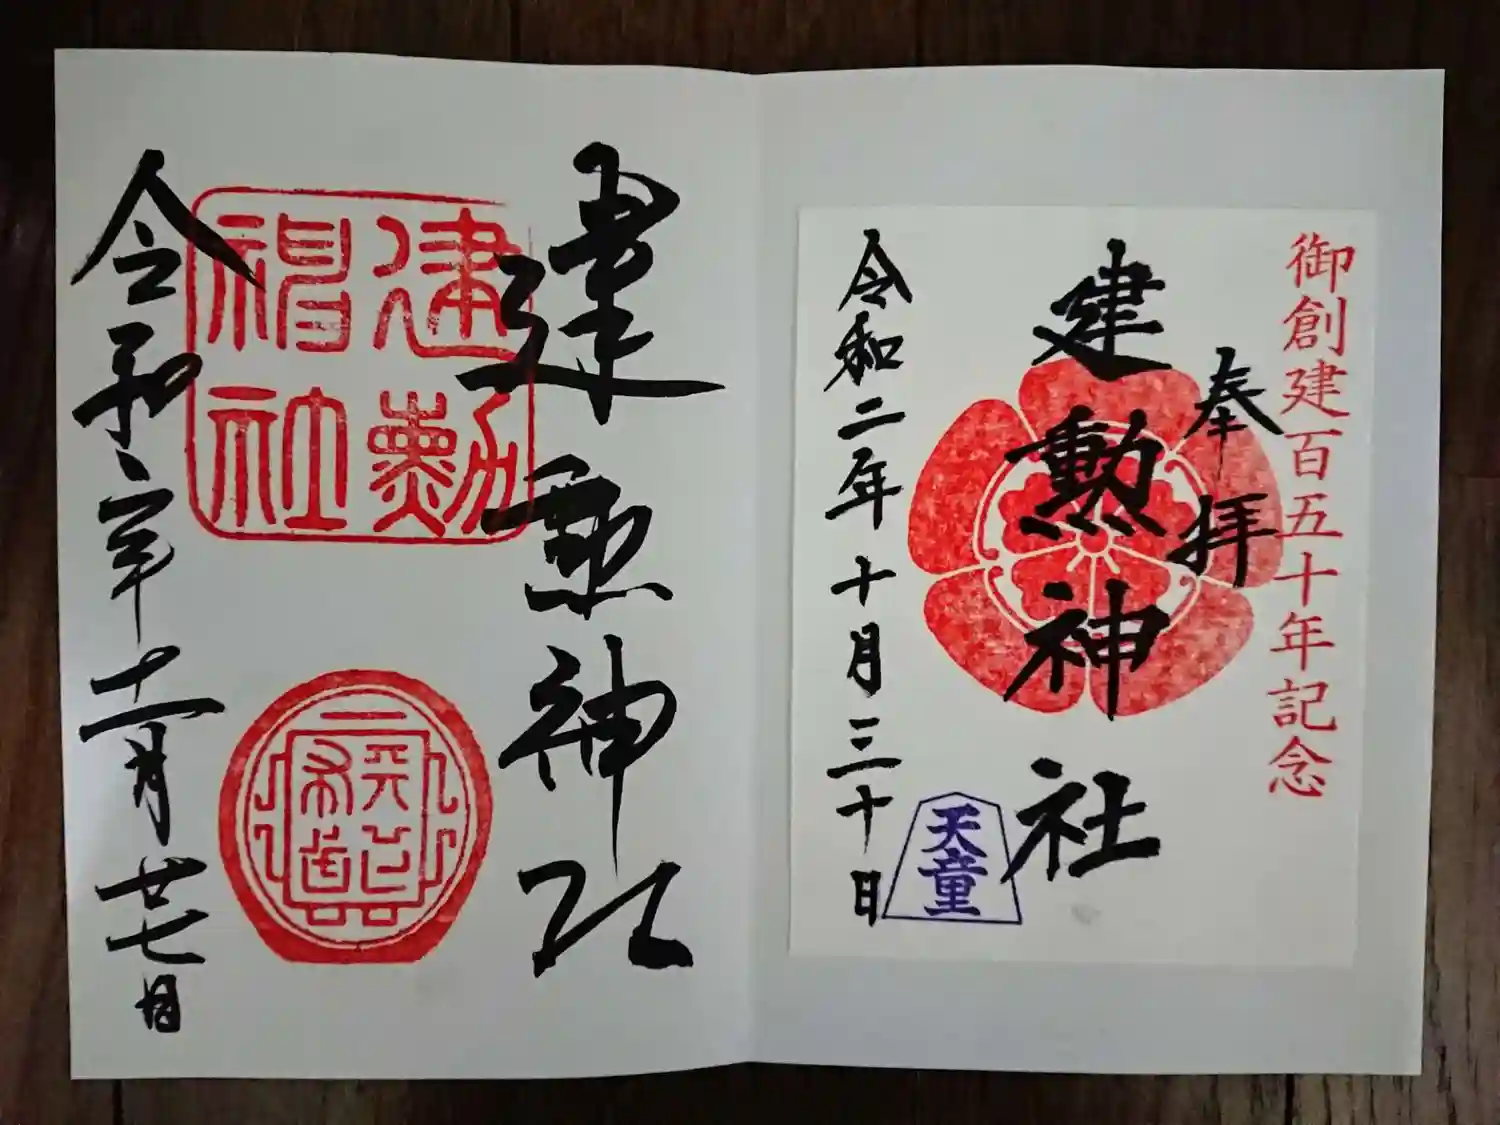 御創建百五十年記念
奉拝
建勲神社
令和二年十月三十日
天童
建勲神社
建勲神社
令和年十一月廿七日